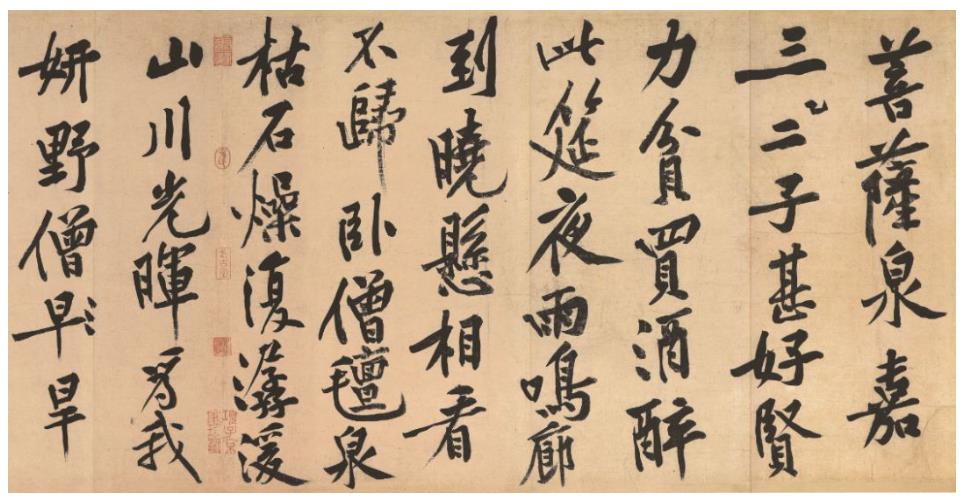 菩薩泉嘉
三二子甚好賢
力貧買酒醉
此筵夜雨鳴廊
到曉懸相看
不歸卧僧氈泉
枯石燥復潺湲
山川光暉為我
妍野僧早旱